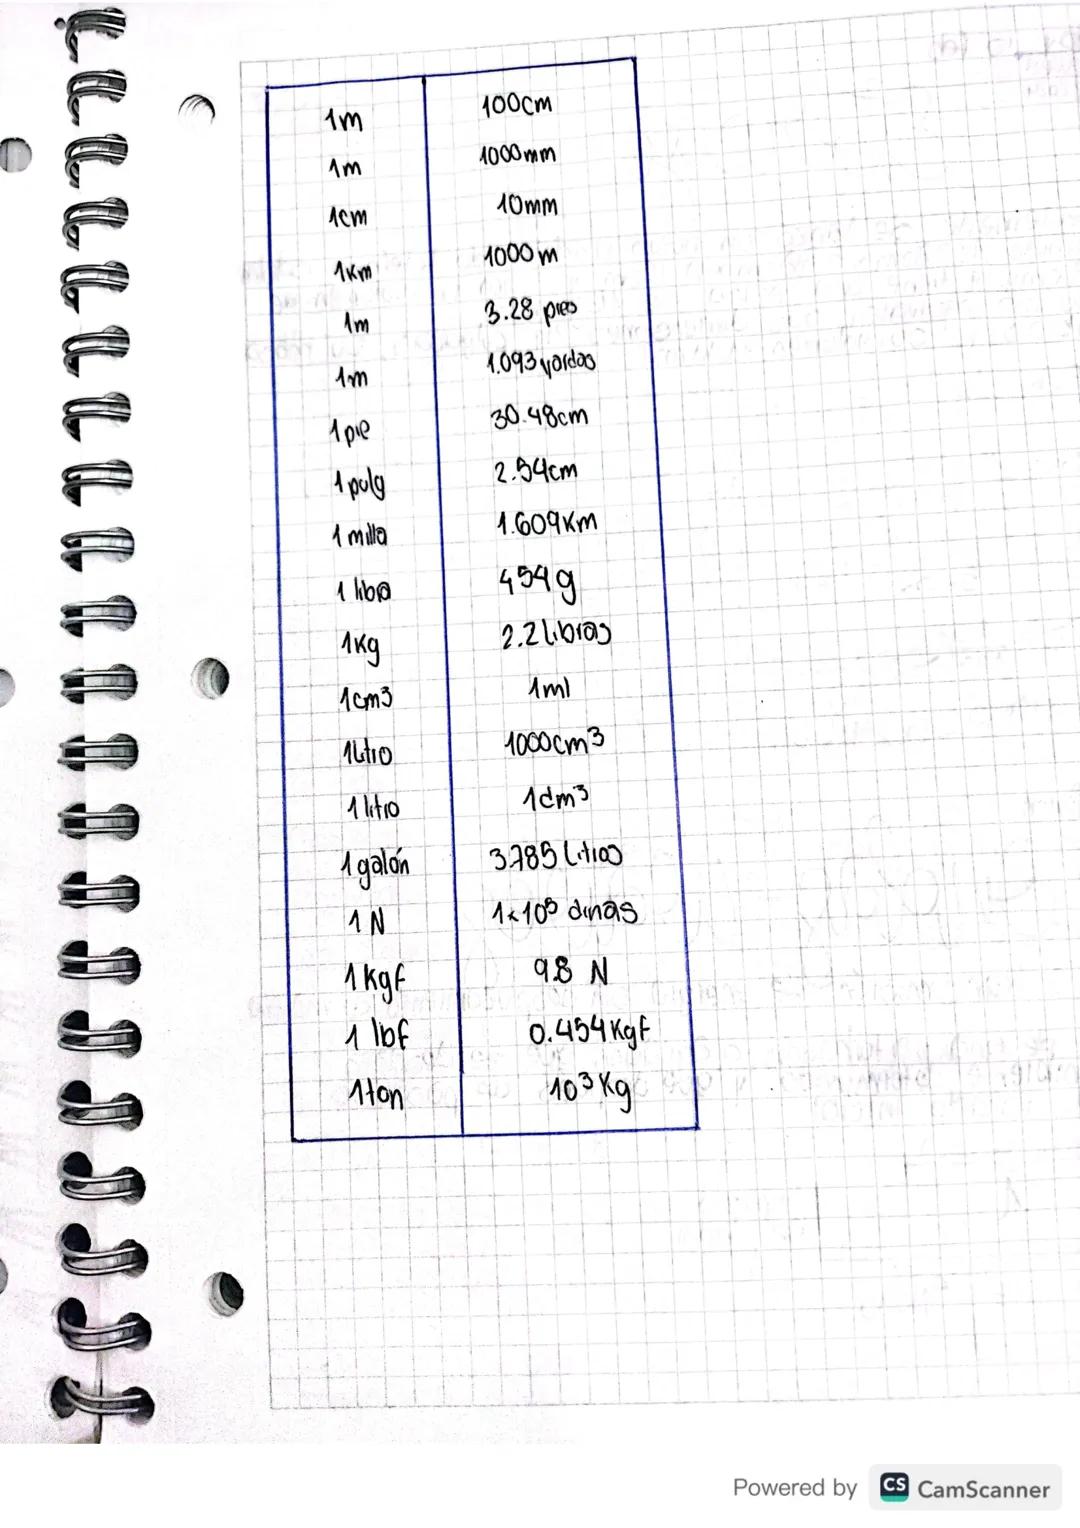 1m 100cm
1m 1000mm
1cm 10mm
1Km 1000m
1m 3.28 pies
1m 1.093 yardas
1 pie 30.48cm
1 pulg 2.54cm
1 milla 1.609Km
1 libra 454g
1Kg 2.2 libras
1cm3 1ml
1 litro 1000cm³
1 litro 1dm³
1 galón 3.785 Litros
1 N 1x10⁵ dinas
1 Kgf 9.8 N
1 lbf 0.454 Kgf
1 ton 10³ Kg
Powered by CS CamScanner